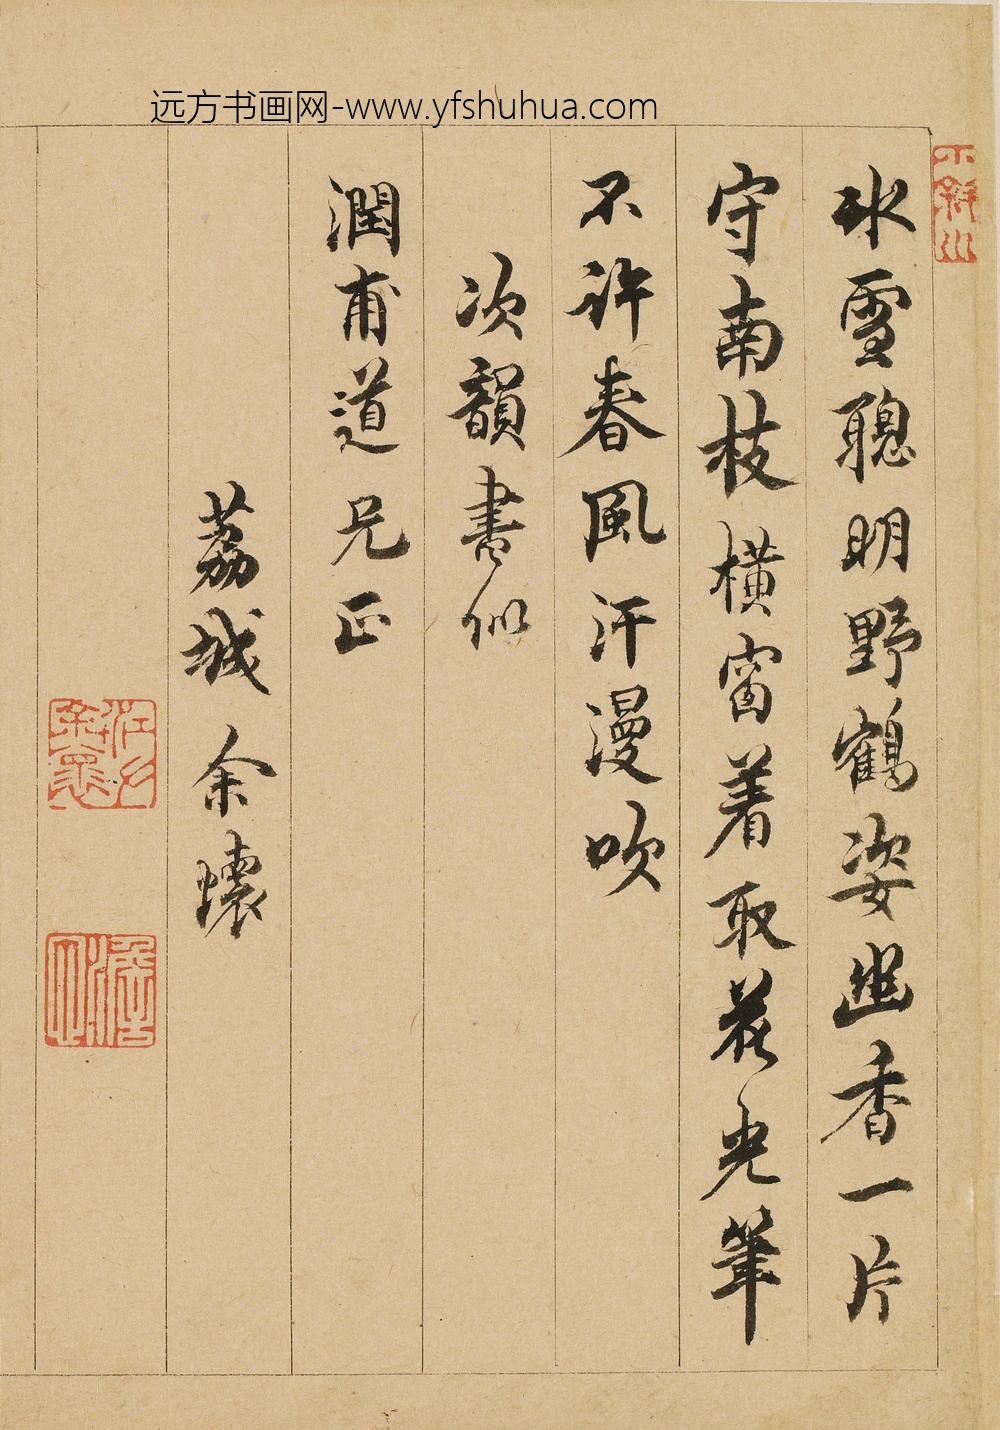 远方书画网-www.yfshuhua.com
氷雪聰明野鶴姿幽香一片
守南枝橫窗着取花光筆
不許春風汗漫吹
次韻書似
潤甫道兄正
荔城余懷